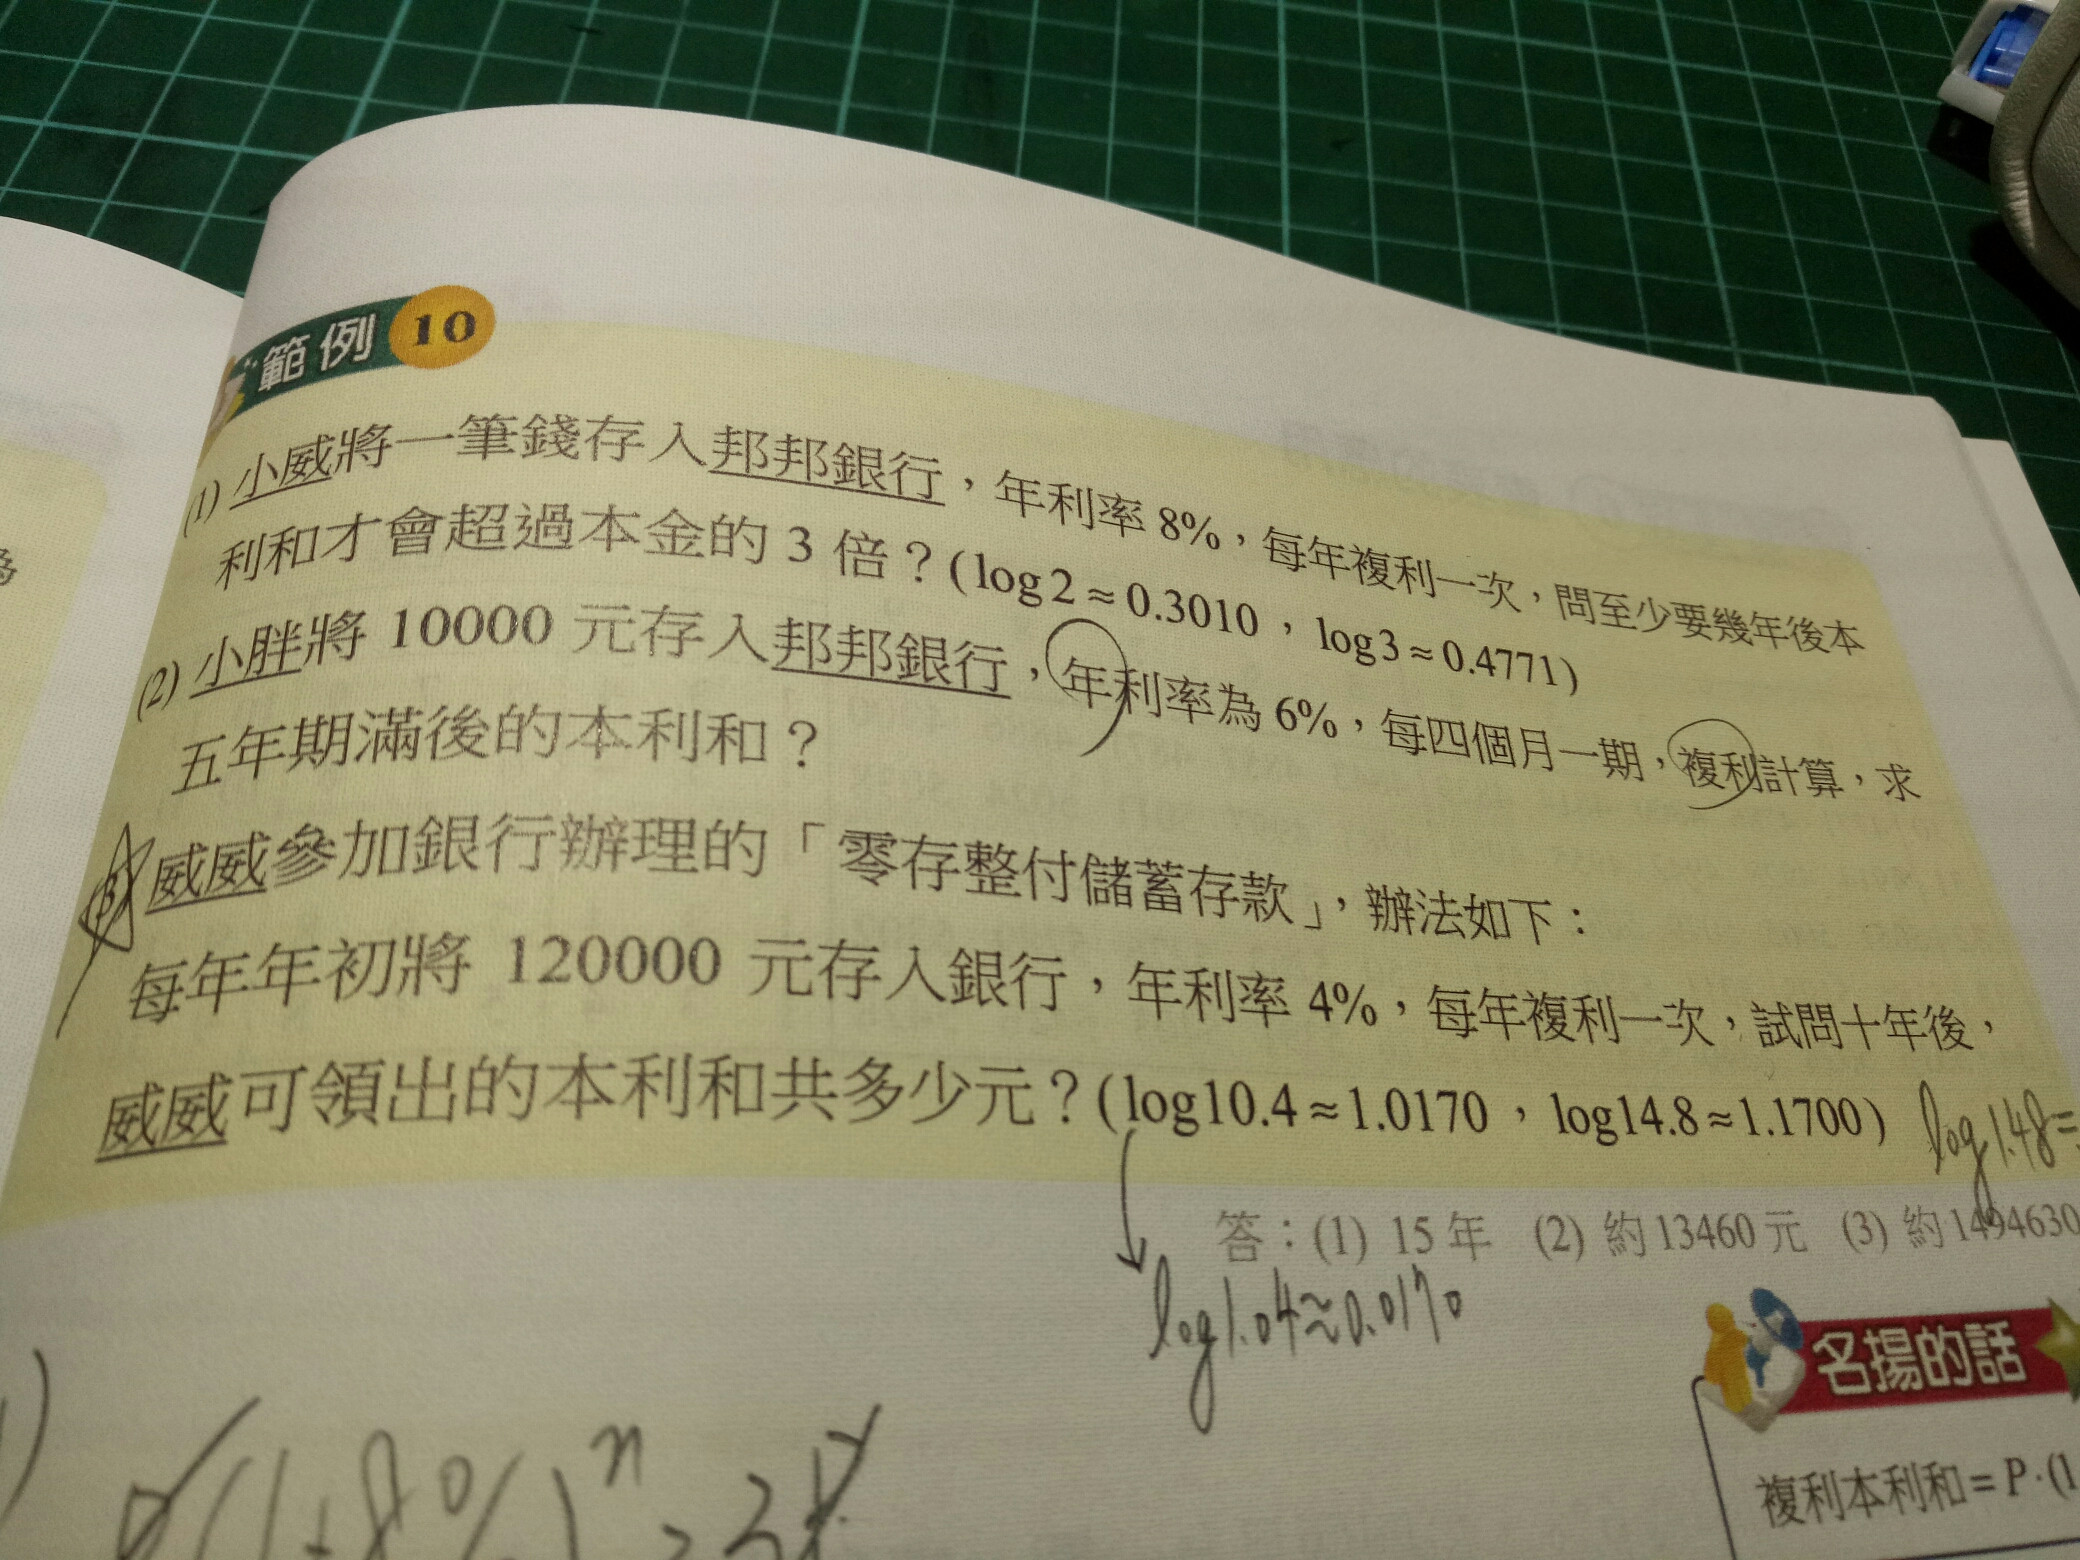 範例 10
(1) 小威將一筆錢存入邦邦銀行，年利率 8%，每年複利一次，問至少要幾年後本
利和才會超過本金的 3 倍？(log2≈0.3010，log3≈0.4771)
(2) 小胖將 10000 元存入邦邦銀行，年利率為 6%，每四個月一期，複利計算，求
五年期滿後的本利和？
(3) 威威參加銀行辦理的「零存整付儲蓄存款」，辦法如下：
每年年初將 120000 元存入銀行，年利率 4%，每年複利一次，試問十年後，
威威可領出的本利和共多少元？(log10.4≈1.0170，log14.8≈1.1700)
log1.48=
答：(1) 15 年 (2) 約 13460 元 (3) 約 1494630
log1.04≈0.0170
名揚的話
複利本利和＝P·(1
(1+8%)^n